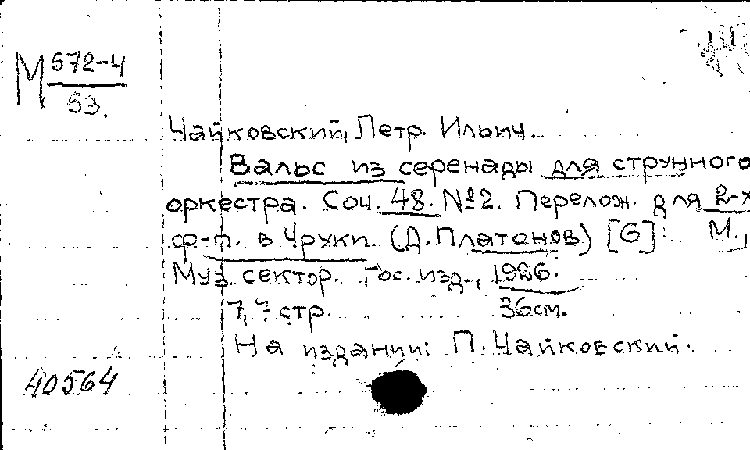 М 572-4
53.
Чайковский, Петр Ильич.
Вальс из серенады для струнного
оркестра. Соч. 48. №2. Перелож. для 2-х
ф-п. в 4 руки (Д. Платонов) [G]: М.,
Муз. сектор. Гос. изд., 1926.
7, 7 стр. 36см.
На издании: П. Чайковский.
40564